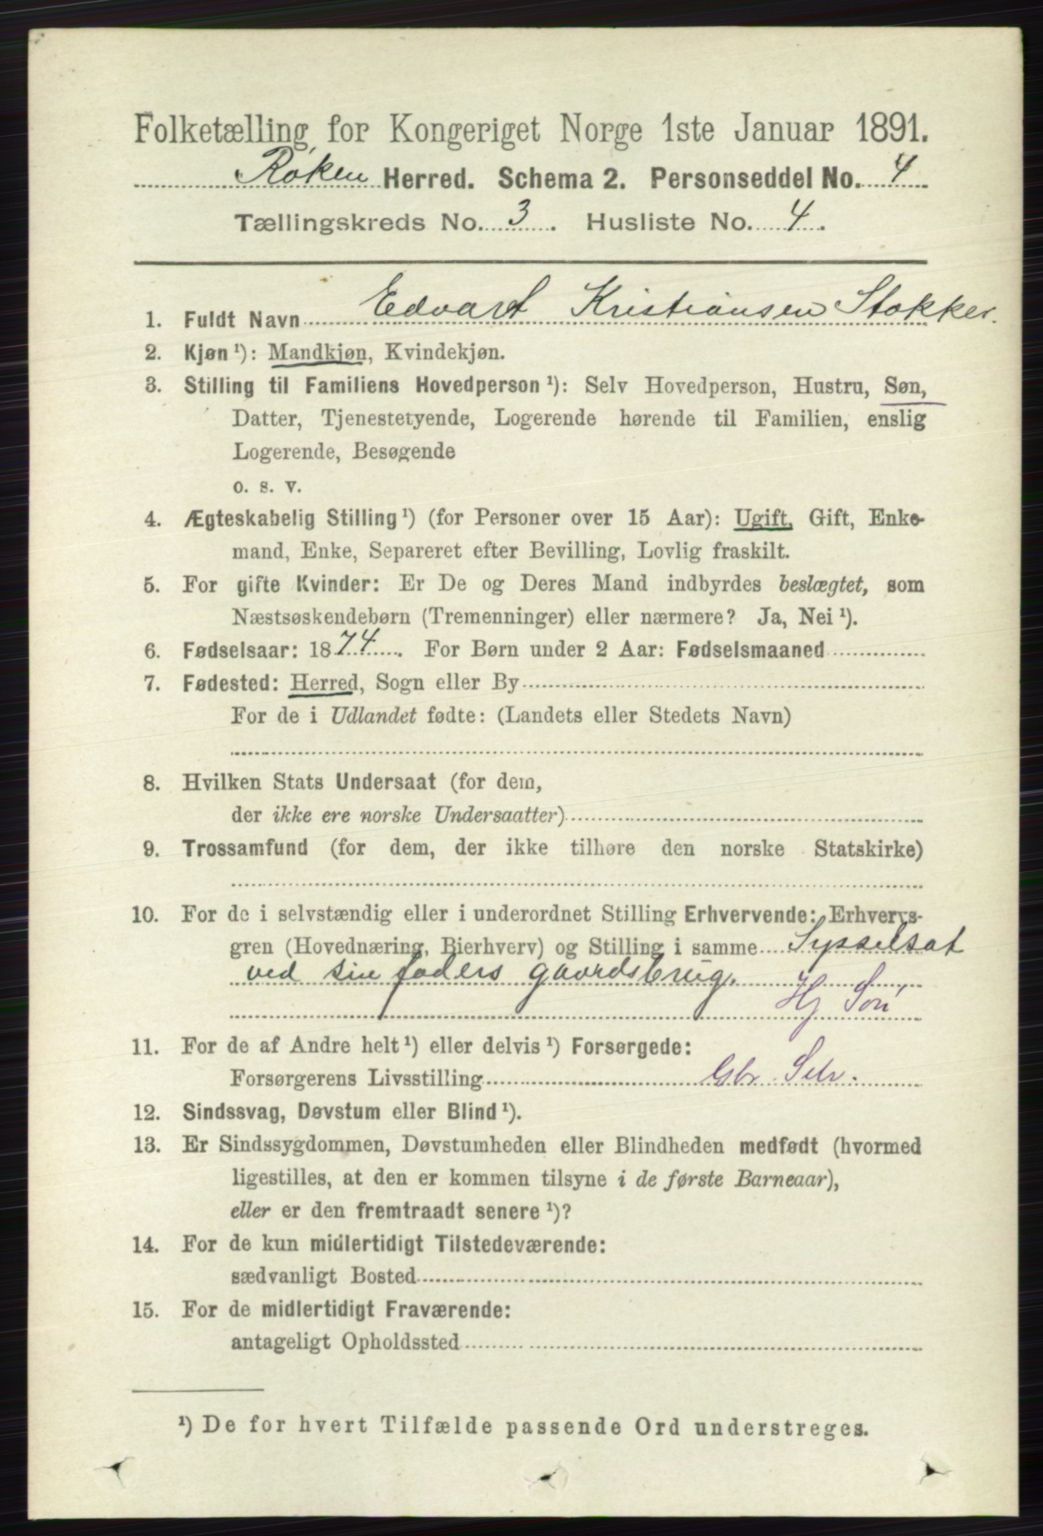 Folketælling for Kongeriget Norge 1ste Januar 1891.
Røken Herred. Schema 2. Personseddel No. 4
Tællingskreds No. 3. Husliste No. 4.
1. Fuldt Navn Edvart Kristiansen Stokker.
2. Kjøn ¹): Mandkjøn, Kvindekjøn.
3. Stilling til Familiens Hovedperson ¹): Selv Hovedperson, Hustru, Søn,
Datter, Tjenestetyende, Logerende hørende til Familien, enslig
Logerende, Besøgende
o. s. v.
4. Ægteskabelig Stilling ¹) (for Personer over 15 Aar): Ugift, Gift, Enke-
mand, Enke, Separeret efter Bevilling, Lovlig fraskilt.
5. For gifte Kvinder: Er De og Deres Mand indbyrdes beslægtet, som
Næstsøskendebørn (Tremenninger) eller nærmere? Ja, Nei ¹).
6. Fødselsaar: 1874. For Børn under 2 Aar: Fødselsmaaned
7. Fødested: Herred, Sogn eller By
For de i Udlandet fødte: (Landets eller Stedets Navn)
8. Hvilken Stats Undersaat (for dem,
der ikke ere norske Undersaatter)
9. Trossamfund (for dem, der ikke tilhøre den norske Statskirke)
10. For de i selvstændig eller i underordnet Stilling Erhvervende: Erhvervs-
gren (Hovednæring, Bierhverv) og Stilling i samme Sysselsat
ved sin faders gaardsbrug.
Hj Søn
11. For de af Andre helt ¹) eller delvis ¹) Forsørgede:
Forsørgerens Livsstilling Gbr. Selv.
12. Sindssvag, Døvstum eller Blind ¹).
13. Er Sindssygdommen, Døvstumheden eller Blindheden medfødt (hvormed
ligestilles, at den er kommen tilsyne i de første Barneaar),
eller er den fremtraadt senere ¹)?
14. For de kun midlertidigt Tilstedeværende:
sædvanligt Bosted
15. For de midlertidigt Fraværende:
antageligt Opholdssted
¹) De for hvert Tilfælde passende Ord understreges.